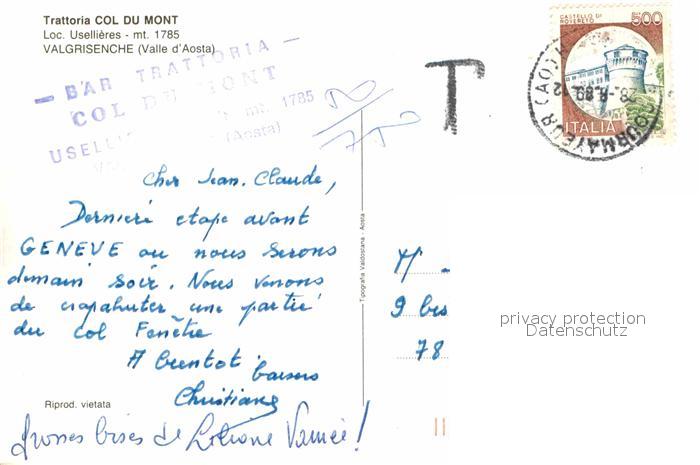 Trattoria COL DU MONT
Loc. Usellières - mt. 1785
VALGRISENCHE (Valle d'Aosta)
BAR TRATTORIA
COL DU MONT
mt. 1785
(Aosta)
T
CASTELLO DI
ROVERETO
500
ITALIA
COURMAYEUR (AO)
28.-8.89.12
Cher Jean.Claude,
Dernière etape avant
GENEVE ou nous serons
demain soir. Nous venons
de crapahuter une partie
du col Fenêtre
A bientot.
baisers
Christiane
Grosses bises de
Riprod. vietata
Tipografia Valdostana - Aosta
9 bis
78
privacy protection
Datenschutz